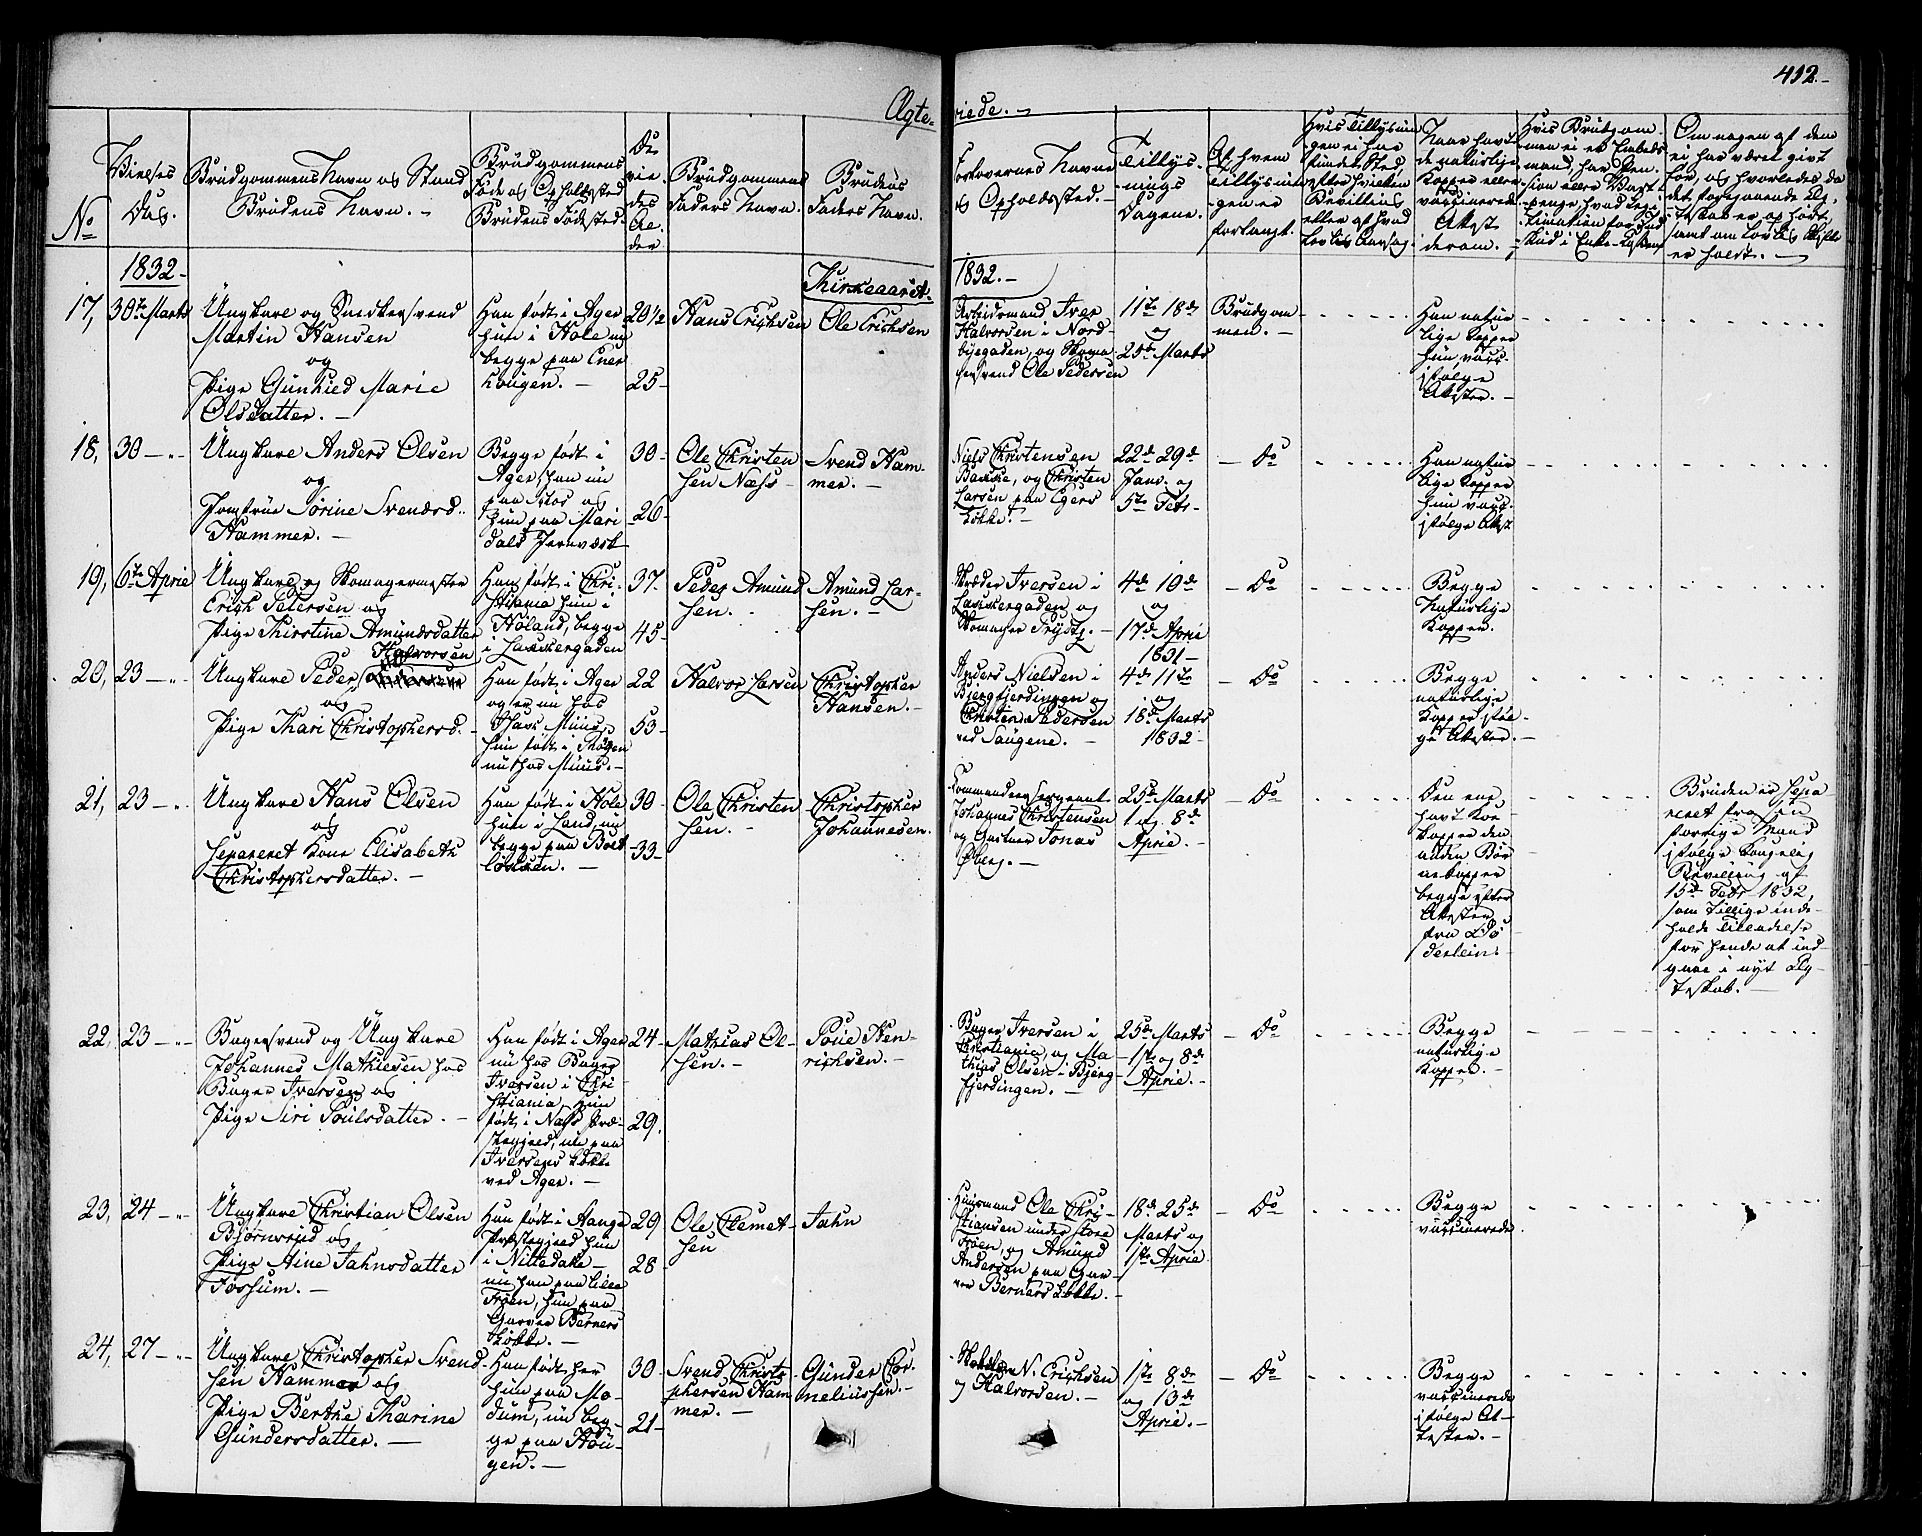 412.
Ægteviede.
No
Vielses
Dag.
Brudgommens Navn og Stand
Brudens Navn.
Brudgommens
Føde og Opholdssted
Brudens Fødested.
De
vie-
des
Al-
der
Brudgommens
Faders Navn.
Brudens
Faders Navn.
Forlovernes Navne
og Opholdssted.
Tillys-
nings
Dagene.
Af hvem
Tillysnin
gen er
forlangt.
Hvis Tillysnin
gen ei har
fundet Sted
efter hvilken
Bevilling
eller af hvad
lovlig Aarsag.
Naar havt
de naturlige
Kopper eller
vaccinerede
Attest
derom.
Hvis Brudgom-
men ei er Embeds
mand, har Pen-
sion eller Vart-
penge, hvad Legi-
timation for Ind-
skud i Enke-Kassen
Om nogen af dem
ei har været givt
før, og hvorledes da
det foregaaende Æg-
teskab er ophørt,
samt om lovlig Skifte
er holdt.
1832
Kirkeaaret
1832.
17, 30te Marts
Ungkarl og Snedkersvend
Martin Hansen
og
Pige Gunhild Marie
Olsdatter.
Han født i Ager
hun i Hole nu
begge paa Ener
hougen.
20½
25
Hans Erichsen
Ole Erichsen
Arbeidsmand Iver
Halvorsen i Nord-
byegaden, og Skoma
gersvend Ole Pedersen
11te 18de
og
25de Marts
Brudgom
men.
Han natur
lige Kopper
hun vacc.
ifølge
Attester.
18, 30
Ungkarl Anders Olsen
og
Jomfrue Sørine Svendsd.
Hammer.
Begge født i
Ager, han nu
paa Moss og
hun paa Mari
dals Jernværk
30
26
Ole Christen
sen Næss
Svend Ham-
mer.
Niels Christensen
Bakke, og Christen
Larsen paa Egers
Løkke.
22de 29de
Janr. og
5te Febr.
Do
Han natur
lige Kopper
hun vacc.
ifølge Attest
19, 6te April
Ungkarl og Skomagermester
Erich Petersen og
Pige Kirstine Amundsdatter
Han født i Chri-
stiania hun i
Høland, begge
i Lakkergaden
37
45
Peder Amund
sen.
Amund Lar-
sen.
Skræder Iversen i
Lakkergaden og
Skomager Trydts.
4de 10de
og
17de April
1831
Do
Begge
Naturlige
Kopper.
20, 23
Ungkarl Peder Halvorsen
og
Pige Kari Christophersd.
Han født i Ager
og er nu hos
Hans Muus,
hun født i Skogen
nu hos Muus.
22
53
Halvor Larsen
Christopher
Hansen.
Anders Nielsen i
Bjergfjerdingen og
Christen Pedersen
ved Saugene.
4de 11te
og
18de Marts
1832
Do
Begge
naturlige
Kopper iføl-
ge Attester.
21, 23
Ungkarl Hans Olsen
og
Separeret Kone Elisabeth
Christophersdatter.
Han født i Hole
hun i Land, nu
begge paa Bolt
løkken.
30
33
Ole Christen
sen.
Christopher
Johannesen.
Kommandeersergeant
Johannes Christensen
og Gartner Jonas
Øberg.
25de Marts
1 og 8de
April.
Do
Den ene
havt Koe
kopper den
anden Bør
nekopper
begge efter
Attester
fra Dø
derlein.
Bruden er Sepa
reret fra sin
forrige Mand
ifølge Kongelig
Bevilling af
15de Febr. 1832,
som tillige inde-
holdt Tilladelse
for hende at ind-
gaae i nyt Æg-
teskab.
22, 23
Bagersvend og Ungkarl
Johannes Mathiesen hos
Bager Iversen og
Pige Siri Poulsdatter.
Han født i Ager
nu hos Bager
Iversen i Chri
stiania, Hun
født i Næss Præ-
stegjeld, nu paa
Iversens Løkke
ved Ager.
24
29.
Mathias Ol-
sen.
Poul Hen-
richsen.
Bager Iversen i
Christiania, og Ma
thias Olsen i Bjerg-
fjerdingen.
25de Marts
1ste og 8de
April.
Do
Begge
naturlige
Kopper.
23, 24
Ungkarl Christian Olsen
Bjørnsrud og
Pige Aine Jahnsdatter
Fossum.
Han født i Aange
Præstegjeld hun
i Nittedale
nu han paa lille
Frøen, hun paa
Garver Berners
Løkke.
29
28
Ole Clemet-
sen
Jahn
Huusmand Ole Chri-
stiansen under store
Frøen, og Amund
Andersen paa Gar-
ver Berners Løkke.
18de 25de
Marts og
1ste April
Do
Begge
vaccinerede
24, 27
Ungkarl Christopher Svend
sen Hammer og
Pige Berthe Karine
Gundersdatter.
Han født her
hun paa Mo-
dum, nu beg-
ge paa Hou-
gen.
30
21
Svend Christo
phersen Ham
mer.
Gunder Cor-
neliussen.
N. Erichsen
og Halvorsen.
1ste 8de
og 13de
April.
Do
Begge
vaccinerede
ifølge At-
tester.